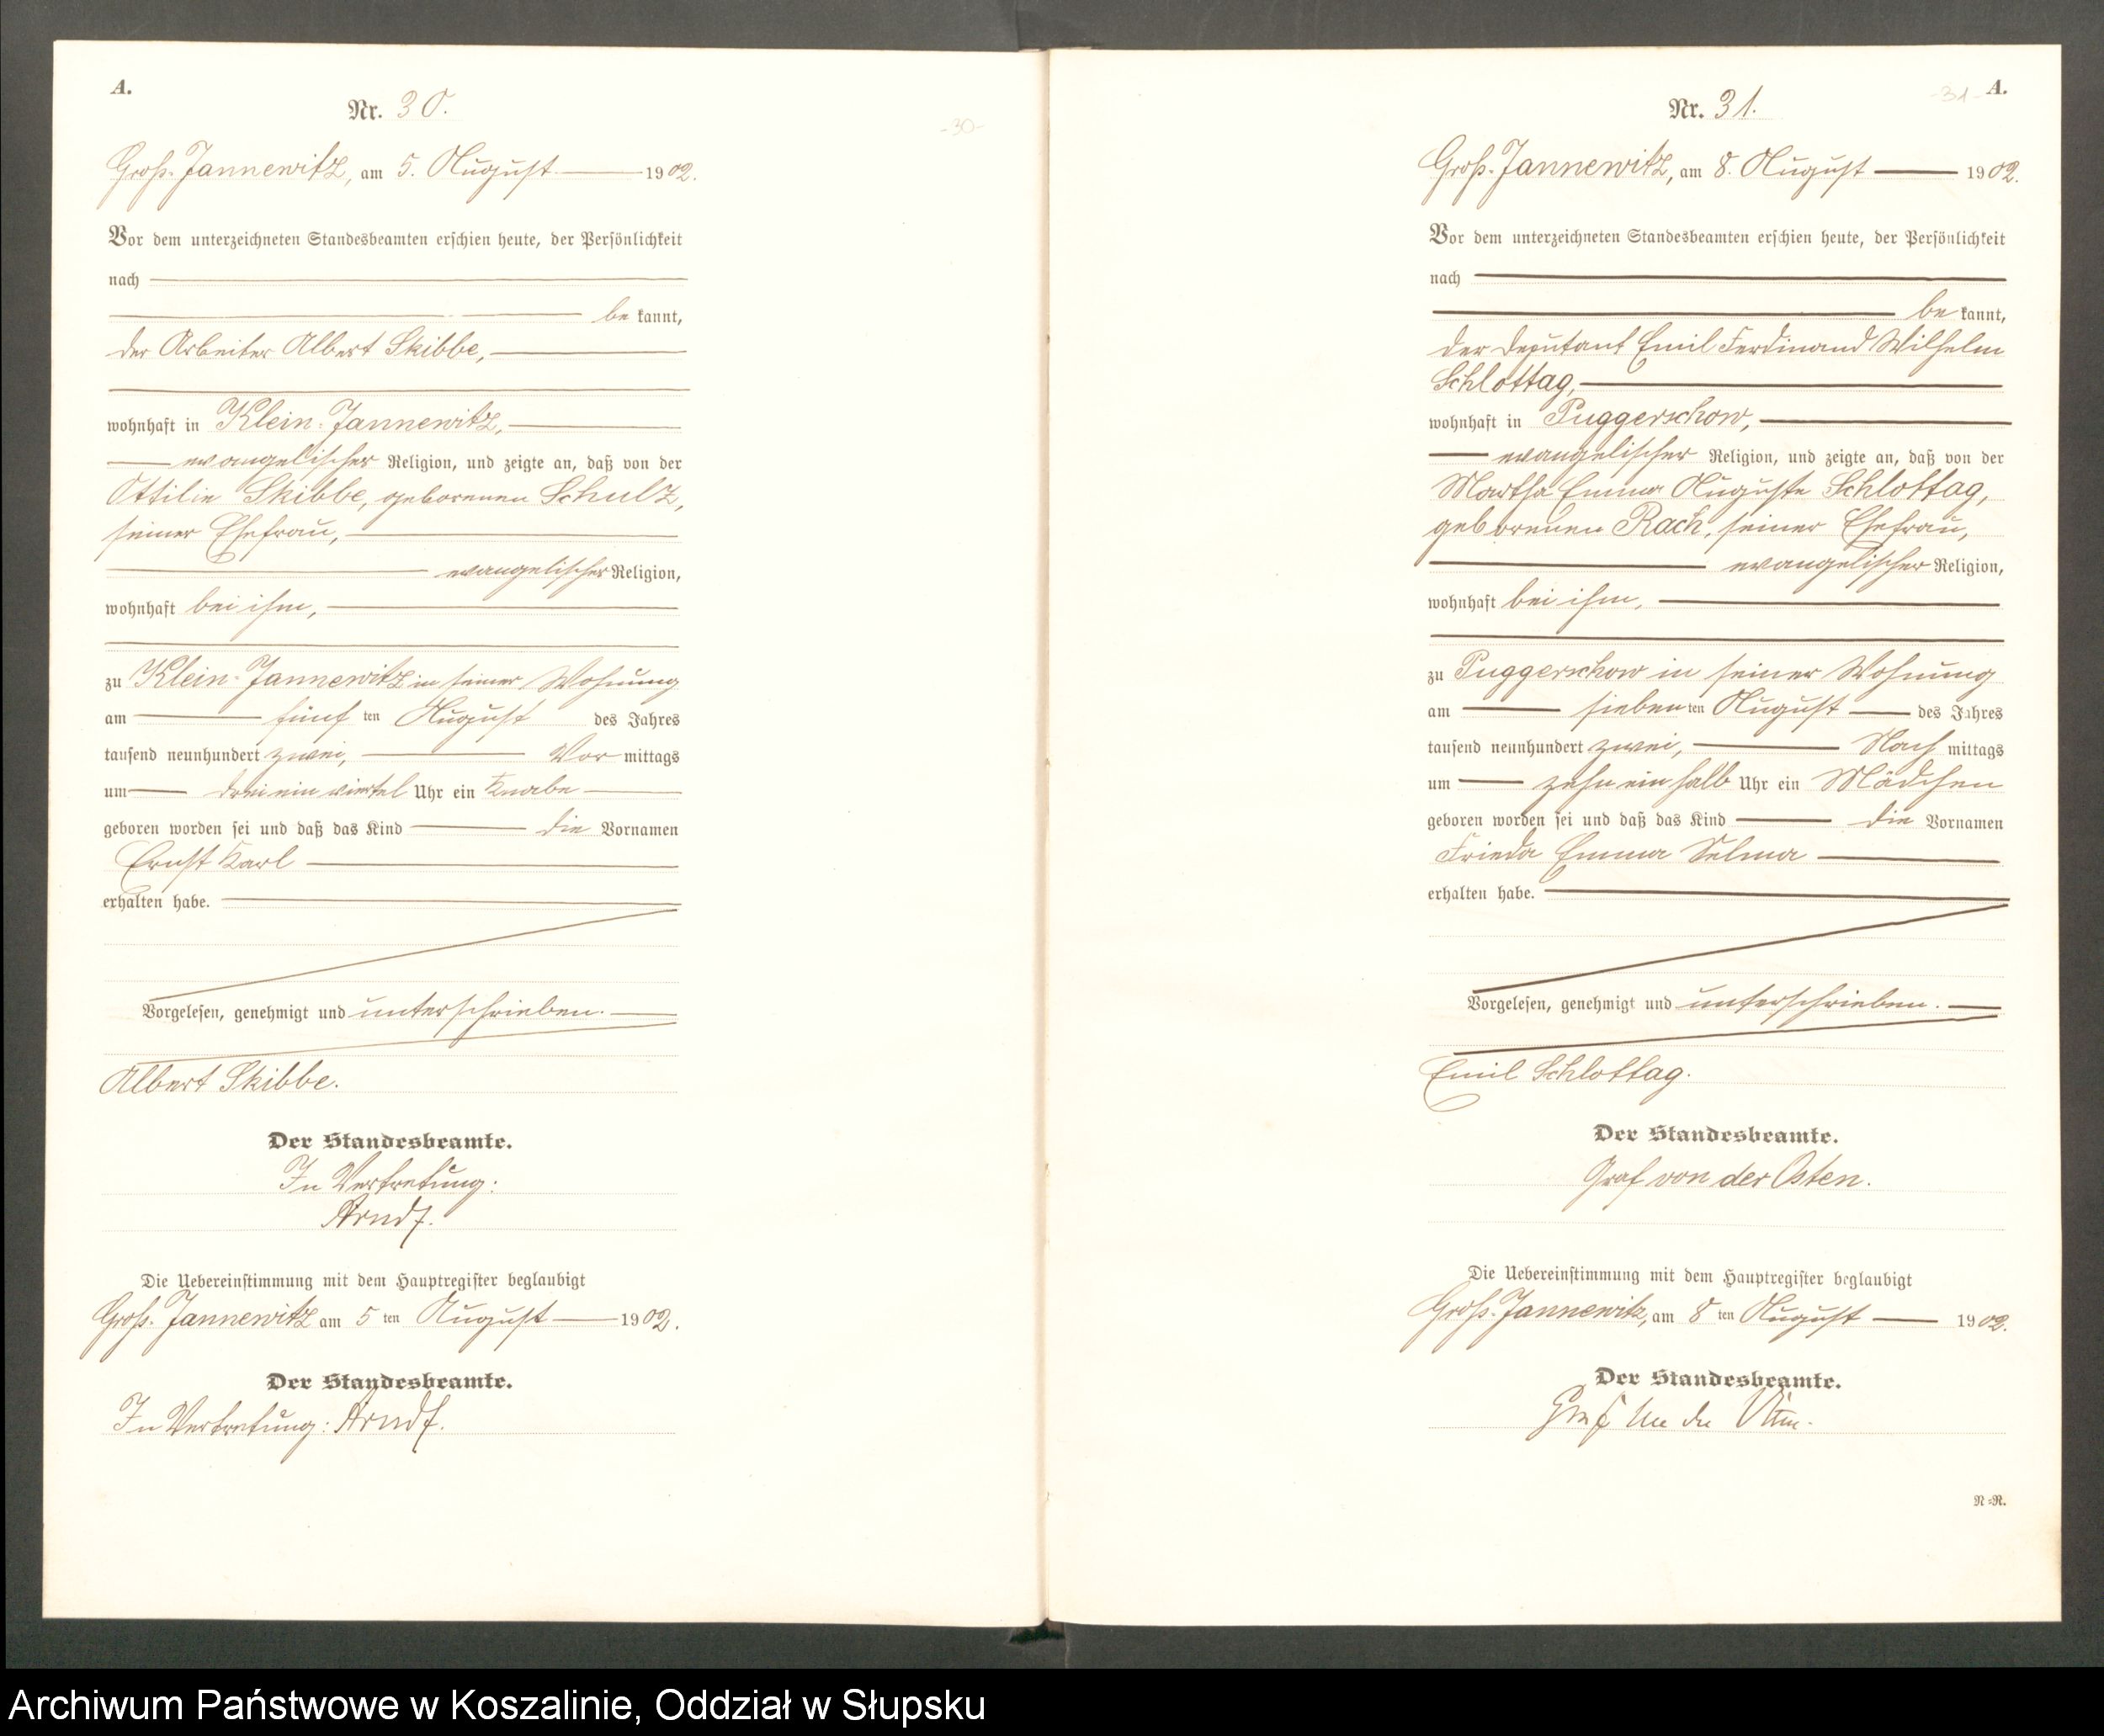 A.
Nr. 30.
-30-
Groß-Jannewitz, am 5. August 1902.
Vor dem unterzeichneten Standesbeamten erschien heute, der Persönlichkeit
nach
be kannt,
der Arbeiter Albert Skibbe,
wohnhaft in Klein-Jannewitz,
evangelischer Religion, und zeigte an, daß von der
Ottilie Skibbe, geborenen Schulz,
seiner Ehefrau,
evangelischer Religion,
wohnhaft bei ihm,
zu Klein-Jannewitz in seiner Wohnung
am fünf ten August des Jahres
tausend neunhundert zwei, Vor mittags
um drei ein viertel Uhr ein Knabe
geboren worden sei und daß das Kind die Vornamen
Ernst Karl
erhalten habe.
Vorgelesen, genehmigt und unterschrieben.
Albert Skibbe.
Der Standesbeamte.
In Vertretung:
Arndt.
Die Uebereinstimmung mit dem Hauptregister beglaubigt
Groß-Jannewitz am 5 ten August 1902.
Der Standesbeamte.
In Vertretung: Arndt.
-31- A.
Nr. 31.
Groß-Jannewitz, am 8. August 1902.
Vor dem unterzeichneten Standesbeamten erschien heute, der Persönlichkeit
nach
be kannt,
der Deputant Emil Ferdinand Wilhelm
Schlottag,
wohnhaft in Puggerschow,
evangelischer Religion, und zeigte an, daß von der
Martha Emma Auguste Schlottag,
geborenen Rach, seiner Ehefrau,
evangelischer Religion,
wohnhaft bei ihm,
zu Puggerschow in seiner Wohnung
am sieben ten August des Jahres
tausend neunhundert zwei, Nach mittags
um zehn ein halb Uhr ein Mädchen
geboren worden sei und daß das Kind die Vornamen
Frieda Emma Selma
erhalten habe.
Vorgelesen, genehmigt und unterschrieben.
Emil Schlottag.
Der Standesbeamte.
Graf von der Osten.
Die Uebereinstimmung mit dem Hauptregister beglaubigt
Groß-Jannewitz, am 8 ten August 1902.
Der Standesbeamte.
Graf von der Osten.
N=R.
Archiwum Państwowe w Koszalinie, Oddział w Słupsku